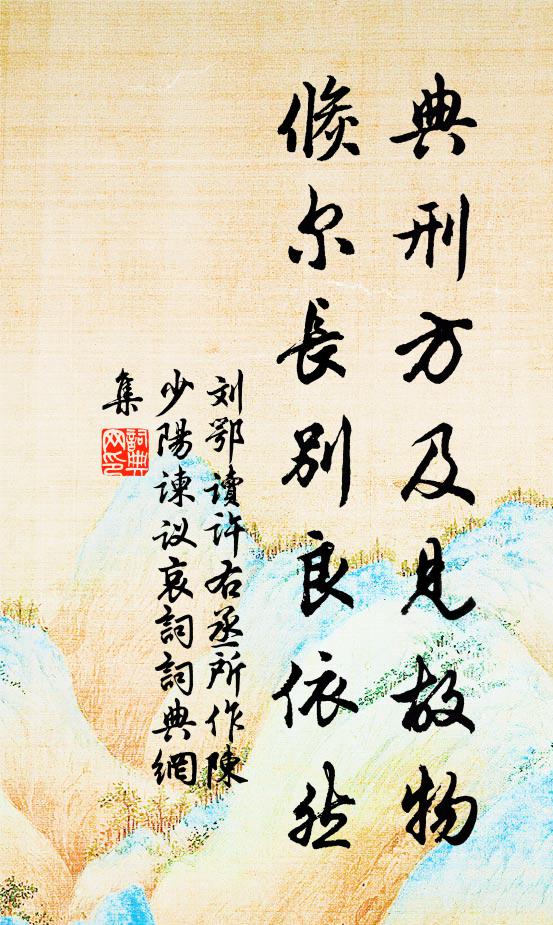 典刑方及見故物
倏尔長别良依然
刘鄂讀许右丞所作陳
少陽諫议哀詞詞典網
集
詞典
网印